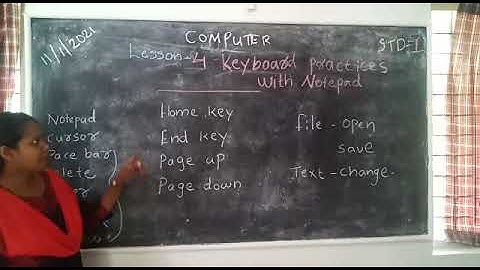 11/11/2021
COMPUTER
STD-I
Lesson-4 Keyboard practices
with Notepad
Notepad
Cursor
Pace bar
lete
Home key
End key
Page up
Page down
File - Open
save
Text - Change.